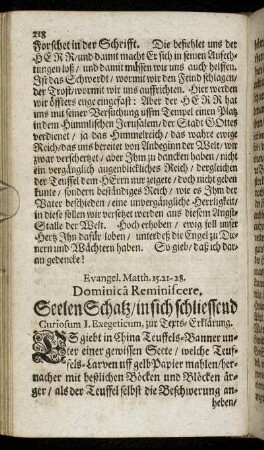 218
Forschet in der Schrifft. Die befiehlet uns der
HERR/und damit macht Er sich in seinen Anfech-
tungen loß/ und damit müssen wir uns auch helffen.
Ist das Schwerdt/ wormit wir den Feind schlagen/
der Trost/wormit wir uns auffrichten. Hier werden
wir öffters enge eingefast: Aber der HERR hat
uns mit seiner Versuchung uffm Tempel einen Platz
in dem Himmlischen Jerusalem/ der Stadt GOttes
verdienet/ ja das Himmelreich/ das wahre ewige
Reich/das uns bereitet von Anbeginn der Welt/ wir
zwar verscherzet/ aber Ihm zu dancken haben/ nicht
ein vergänglich augenblickliches Reich/ dergleichen
der Teuffel dem HErrn nur zeigete/ doch nicht geben
kunte/ sondern beständiges Reich/ wie es Ihm der
Vater beschieden/ eine unvergängliche Herrligkeit/
in diese sollen wir versetzet werden aus diesem Angst-
Stalle der Welt. Hoch erhoben/ ewig soll unser
Hertz Ihn dafür loben/ unterdeß die Engel zu Die-
nern und Wächtern haben. So gieb/ daß ich dar-
an gedencke!
Evangel. Matth. 15.21-28.
Dominicâ Reminiscere,
Seelen Schatz/in sich schliessend
Curiosum I. Exegeticum, zur Texts-Erklärung.
ES giebt in China Teuffels-Banner un-
ter einer gewissen Secte/ welche Teuf-
fels-Larven uff gelb Papier mahlen/ her-
nacher mit heßlichen Böcken und Blöcken är-
ger/ als der Teuffel selbst die Beschwerung an-
heben/